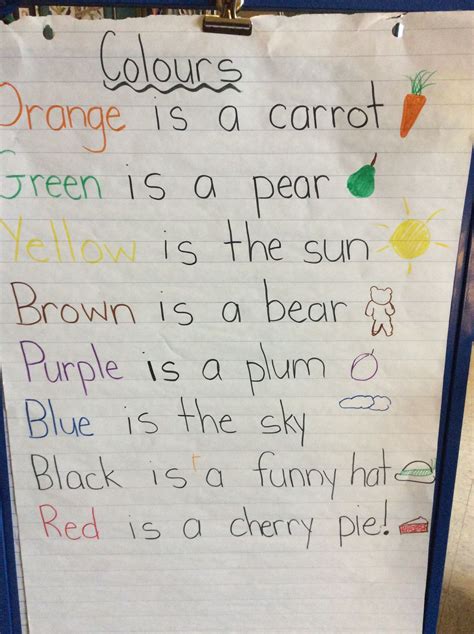 Colours
Orange is a carrot
Green is a pear
Yellow is the sun
Brown is a bear
Purple is a plum
Blue is the sky
Black is a funny hat
Red is a cherry pie!